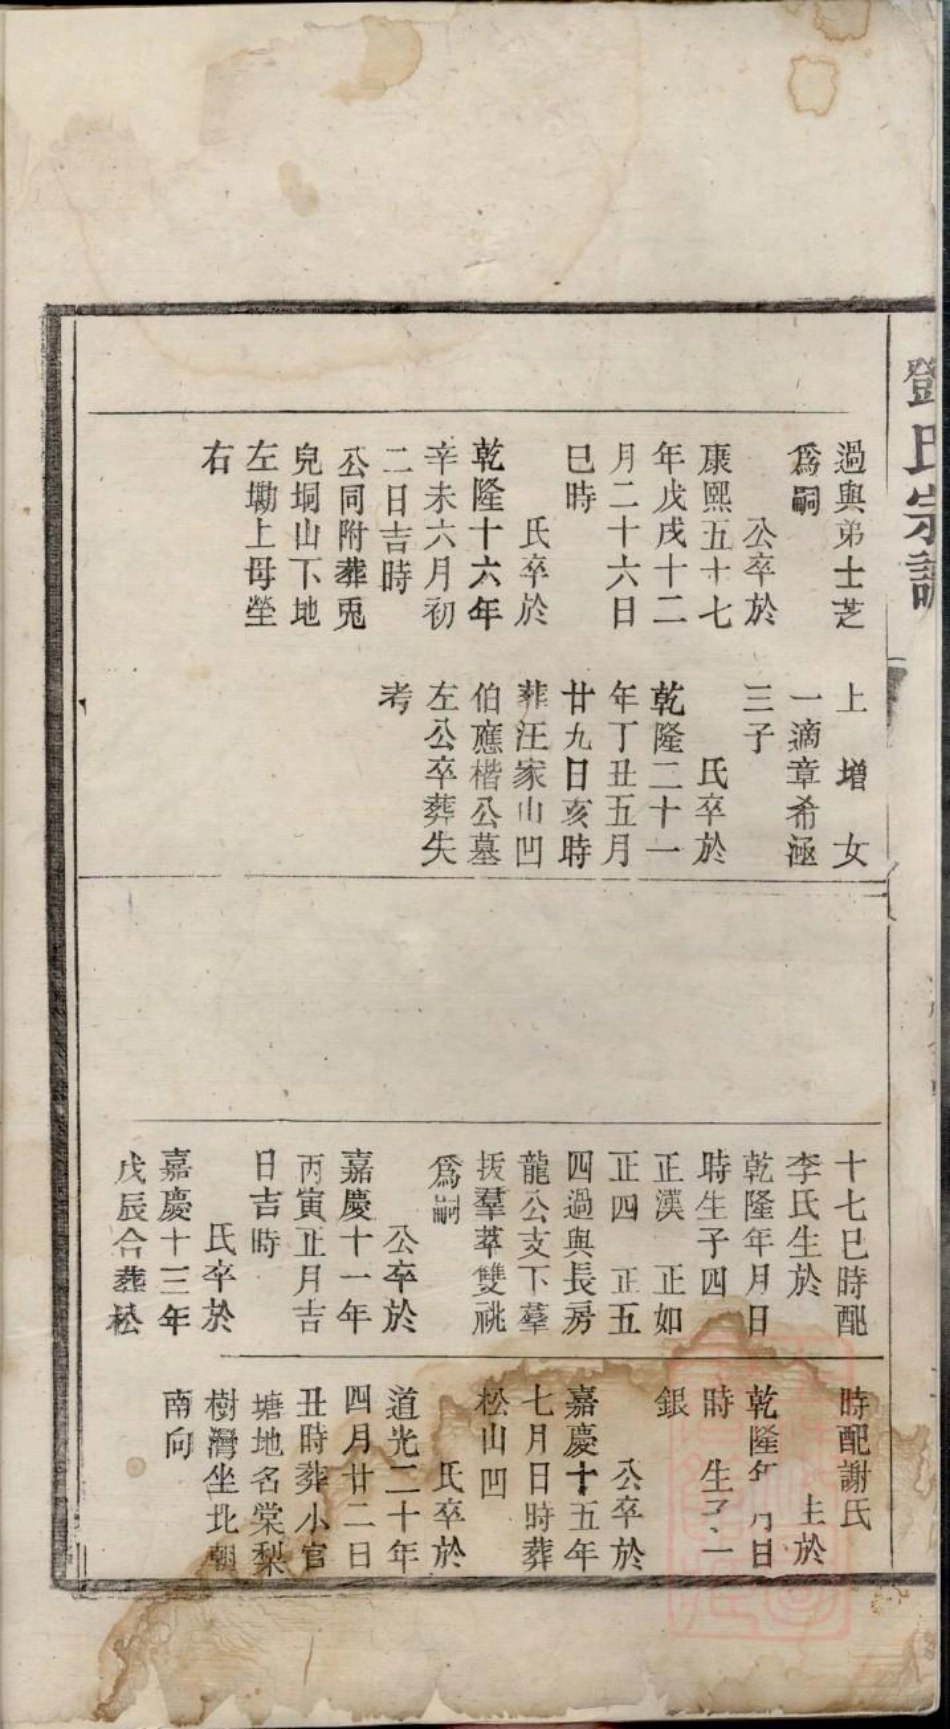 鄧氏宗譜
過與弟士芝
爲嗣
公卒於
康熙五十七
年戊戌十二
月二十六日
巳時
氏卒於
乾隆十六年
辛未六月初
二日吉時
公同附葬兎
兒垌山下地
左墈上母塋
右
上 增 女
一適章希極
三子
氏卒於
乾隆二十一
年丁丑五月
廿九日亥時
葬汪家山凹
伯應楷公墓
左公卒葬失
考
十七巳時配
李氏生於
乾隆年月日
時生子四
正漢 正如
正四 正五
四過與長房
龍公支下羣
拔羣萃雙祧
爲嗣
公卒於
嘉慶十一年
丙寅正月吉
日吉時
氏卒於
嘉慶十三年
戊辰合葬松
時配謝氏
生於
乾隆年 月日
時 生子二
銀
公卒於
嘉慶十五年
七月日時葬
松山凹
氏卒於
道光二十年
四月廿二日
丑時葬小官
塘地名棠梨
樹灣坐北朝
南向